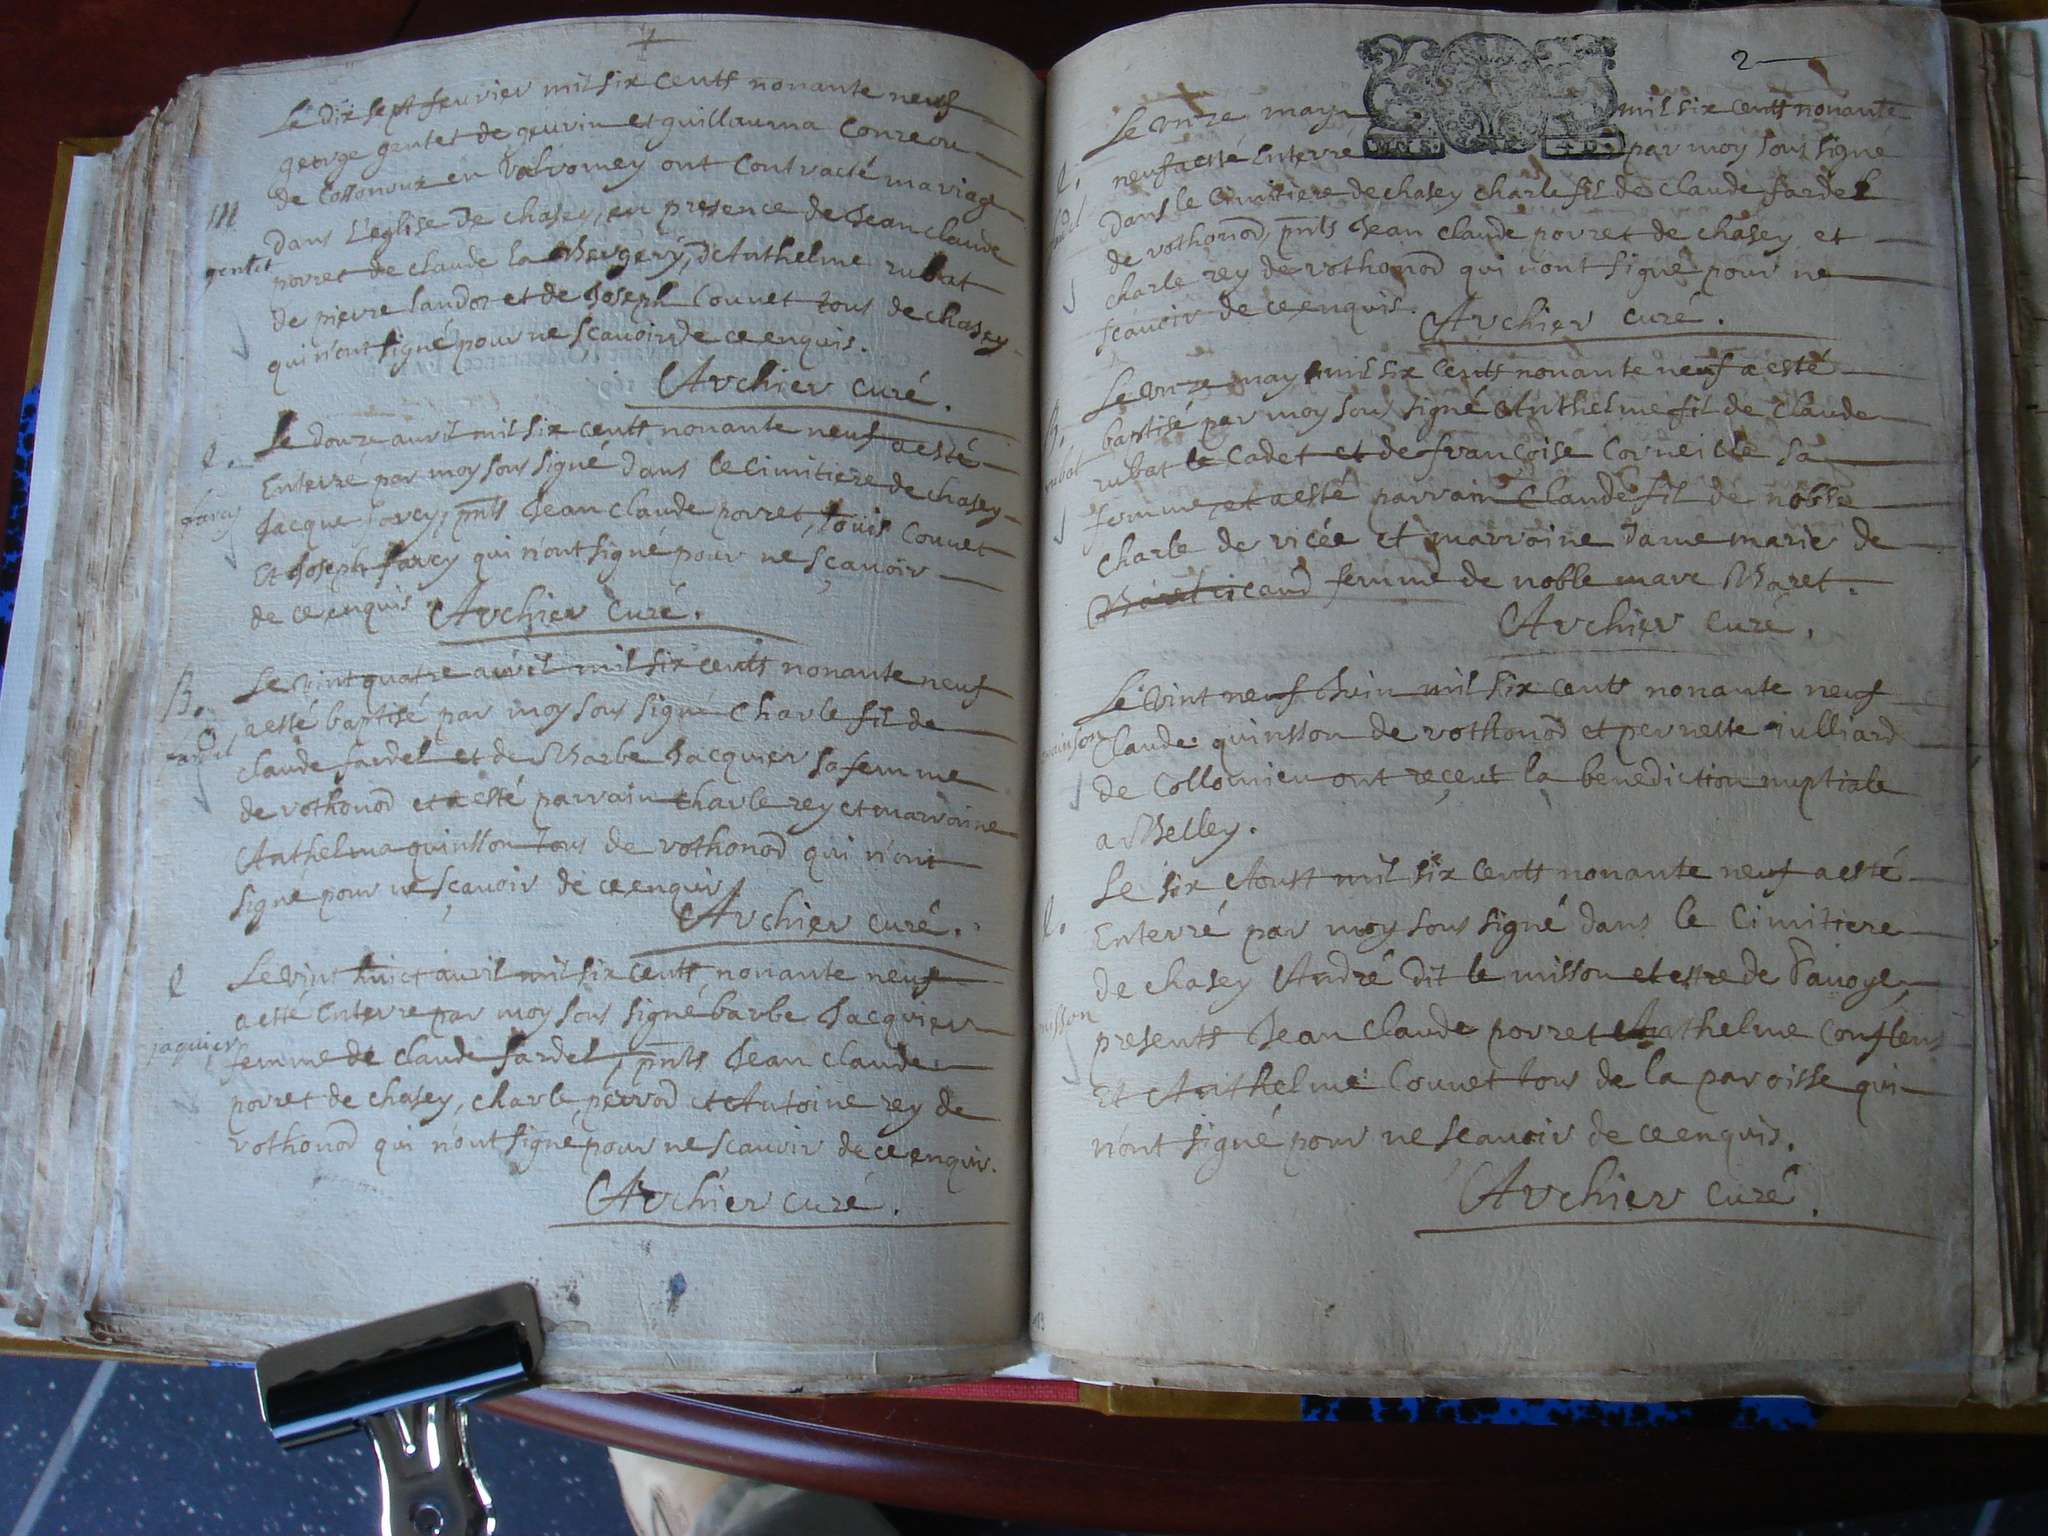 Le dix sept fevrier mil six cents nonante neuf
george gentet de et guillauma
de en Valromey ont Contracté mariage
M
dans l'eglise de chasey, en presence de Jean claude
gentet
porret de claude la Bergery, d'Anthelme rubat
de pierre landoz et de Joseph Couvet tous de chasey
qui n'ont signé pour ne scavoir de ce enquis.
Archier curé.
e.
Le douze avril mil six cents nonante neuf a esté
Enterré par moy sous signé dans le Cimitiere de chasey
farcy
Jacque farcy, pnts Jean Claude porret, louis Couvet
Et Joseph farcy qui n'ont signé pour ne sçavoir
de ce enquis Archier Curé.
B.
Le vint quatre avril mil six cents nonante neuf
a esté baptisé par moy sous signé Charle fil de
fardel
claude fardel et de Barbe Jacquier sa femme
de rothonod et a esté parrain charle rey et marraine
Anthelma quinsson tous de rothonod qui n'ont
signé pour ne sçavoir de ce enquis
Archier curé.
e
Le vint huict avril mil six cents nonante neuf
a esté Enterre par moy sous signé barbe Jacquier
jaquier
femme de claude fardel, pnts Jean Claude
porret de chasey, charle perrod et Antoine rey de
rothonod qui n'ont signé pour ne scavoir de ce enquis.
Archier curé.
2
Le unze may mil six cents nonante
e.
neuf a esté Enterré par moy sous signé
fardel
dans le Cimitiere de chasey charle fil de claude fardel
de rothonod, pnts Jean claude porret de chasey et
charle rey de rothonod qui n'ont signé pour ne
scavoir de ce enquis. Archier curé.
Le unze may mil six cents nonante neuf a esté
B.
baptisé par moy sous signé Anthelme fil de claude
rubat
rubat le Cadet et de françoise Corneille sa
femme, et a esté parrain Claude fil de noble
charle de et marraine dame marie de
femme de noble marc Baret.
Archier curé.
Le vint neuf Juin mil six cents nonante neuf
quinsson
Claude quinsson de rothonod et pernette julliard
de Collomieu ont reçeut la benediction nuptiale
a Belley.
Le six Aoust mil six cents nonante neuf a esté
e.
Enterré par moy sous signé dans le Cimitiere
de chasey André dit le misson et estre de Savoye,
misson
presents Jean Claude porret Anthelme Conflens
Et Anthelme Couvet tous de la paroisse qui
n'ont signé pour ne scavoir de ce enquis.
Archier curé.